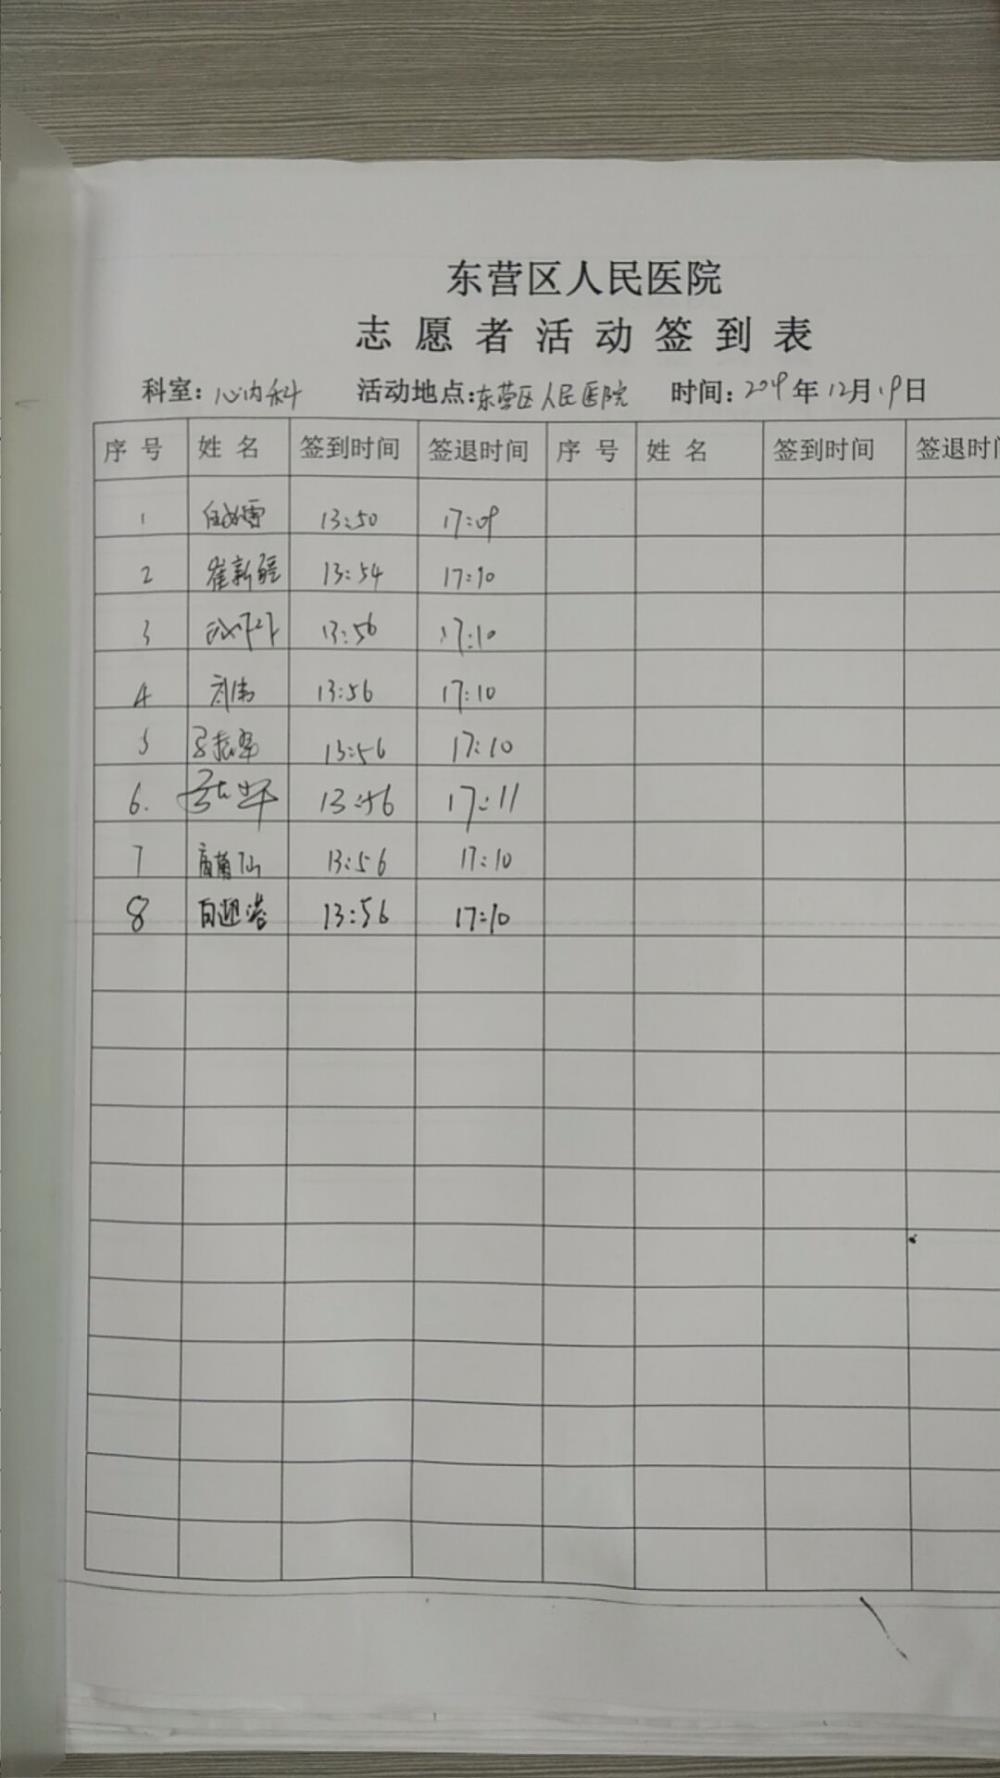 东营区人民医院
志愿者活动签到表
科室：心内科 活动地点：东营区人民医院 时间：2019年12月19日
序号 姓名 签到时间 签退时间 序号 姓名 签到时间 签退时
1 13:50 17:09
2 崔新疆 13:54 17:10
3 13:56 17:10
4 13:56 17:10
5 13:56 17:10
6. 13:56 17:11
7 13:56 17:10
8 白迎港 13:56 17:10